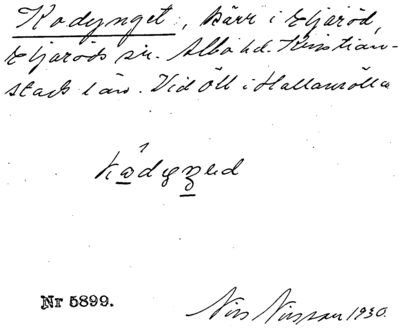 Kodynget, kärr i Eljaröd,
Eljaröds sn. Albo hd. Kristian-
stads län. Vid Öll i Hallamölla
kωdyŋed
Nr 5899.
Nils Nilsson 1930.